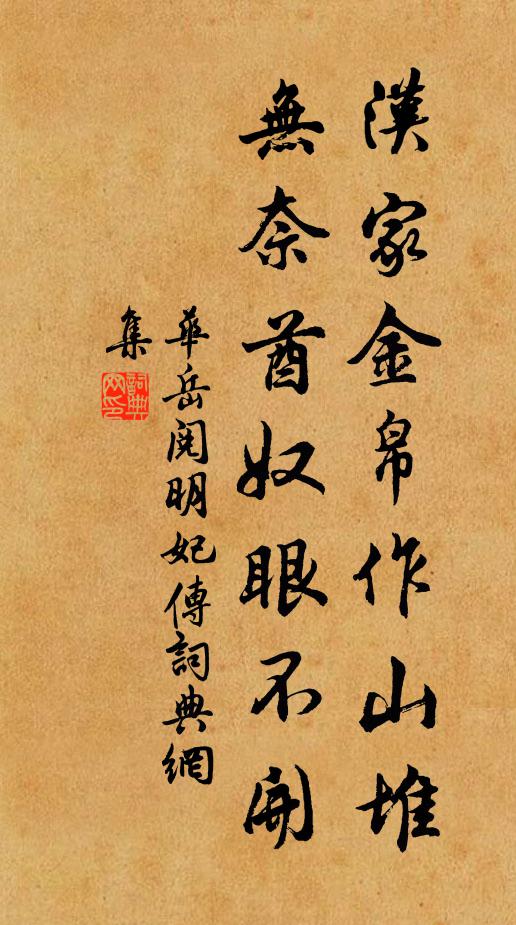 漢家金帛作山堆
無奈酋奴眼不開
華岳閱明妃傳詞典網
集
詞典
网印